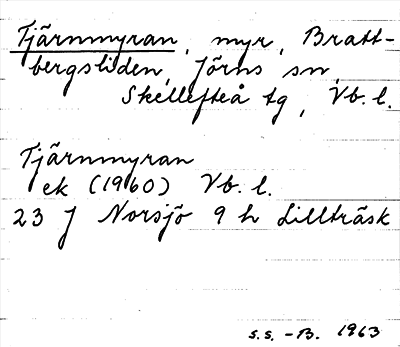 Tjärnmyran, myr, Bratt-
bergsliden, Jörns sn,
Skellefteå tg, Vb. l.
Tjärnmyran
ek (1960) Vb. l.
23 J Norsjö 9 h Lillträsk
S.S. -B. 1963